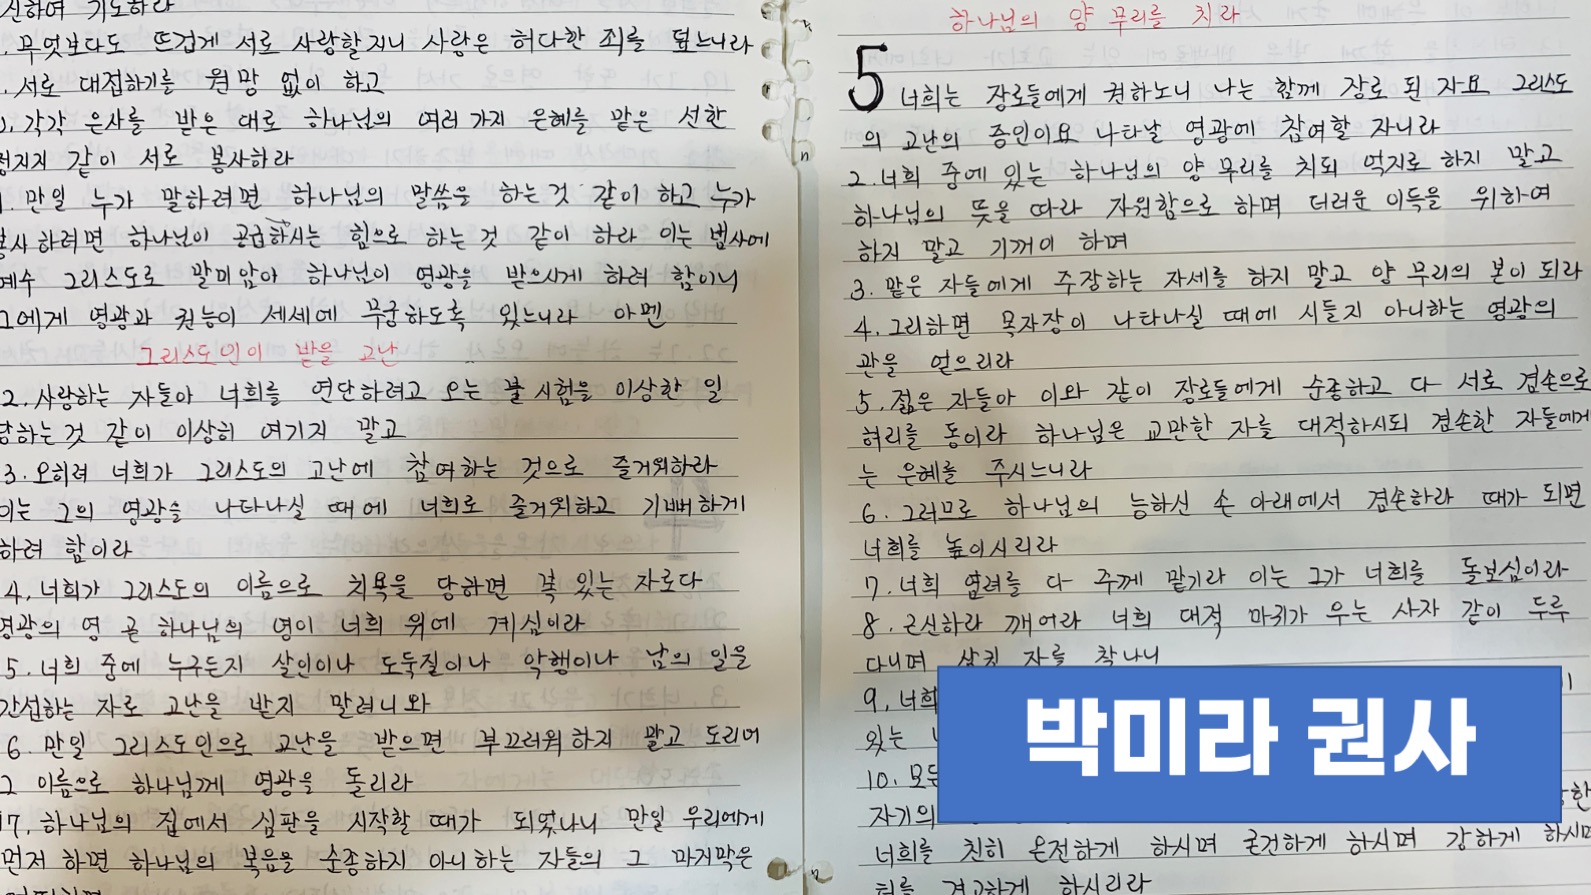 신하여 기도하라
무엇보다도 뜨겁게 서로 사랑할지니 사랑은 허다한 죄를 덮느니라
서로 대접하기를 원망 없이 하고
각각 은사를 받은 대로 하나님의 여러 가지 은혜를 맡은 선한
청지기 같이 서로 봉사하라
만일 누가 말하려면 하나님의 말씀을 하는 것 같이 하고 누가
봉사하려면 하나님이 공급하시는 힘으로 하는 것 같이 하라 이는 범사에
예수 그리스도로 말미암아 하나님이 영광을 받으시게 하려 함이니
그에게 영광과 권능이 세세에 무궁하도록 있느니라 아멘
그리스도인이 받을 고난
2. 사랑하는 자들아 너희를 연단하려고 오는 불 시험을 이상한 일
당하는 것 같이 이상히 여기지 말고
3. 오히려 너희가 그리스도의 고난에 참여하는 것으로 즐거워하라
이는 그의 영광을 나타나실 때에 너희로 즐거워하고 기뻐하게
하려 함이라
4. 너희가 그리스도의 이름으로 치욕을 당하면 복 있는 자로다
영광의 영 곧 하나님의 영이 너희 위에 계심이라
5. 너희 중에 누구든지 살인이나 도둑질이나 악행이나 남의 일을
간섭하는 자로 고난을 받지 말려니와
6. 만일 그리스도인으로 고난을 받으면 부끄러워하지 말고 도리어
그 이름으로 하나님께 영광을 돌리라
17. 하나님의 집에서 심판을 시작할 때가 되었나니 만일 우리에게
먼저 하면 하나님의 복음을 순종하지 아니하는 자들의 그 마지막은
하나님의 양 무리를 치라
5 너희는 장로들에게 권하노니 나는 함께 장로 된 자요 그리스도
의 고난의 증인이요 나타날 영광에 참여할 자니라
2. 너희 중에 있는 하나님의 양 무리를 치되 억지로 하지 말고
하나님의 뜻을 따라 자원함으로 하며 더러운 이득을 위하여
하지 말고 기꺼이 하며
3. 맡은 자들에게 주장하는 자세를 하지 말고 양 무리의 본이 되라
4. 그리하면 목자장이 나타나실 때에 시들지 아니하는 영광의
관을 얻으리라
5. 젊은 자들아 이와 같이 장로들에게 순종하고 다 서로 겸손으로
허리를 동이라 하나님은 교만한 자를 대적하시되 겸손한 자들에게
는 은혜를 주시느니라
6. 그러므로 하나님의 능하신 손 아래에서 겸손하라 때가 되면
너희를 높이시리라
7. 너희 염려를 다 주께 맡기라 이는 그가 너희를 돌보심이라
8. 근신하라 깨어라 너희 대적 마귀가 우는 사자 같이 두루
다니며 삼킬 자를 찾나니
9. 너희
있는
10. 모든
자기의
너희를 친히 온전하게 하시며 굳건하게 하시며 강하게 하시며
터를 견고하게 하시리라
박미라 권사